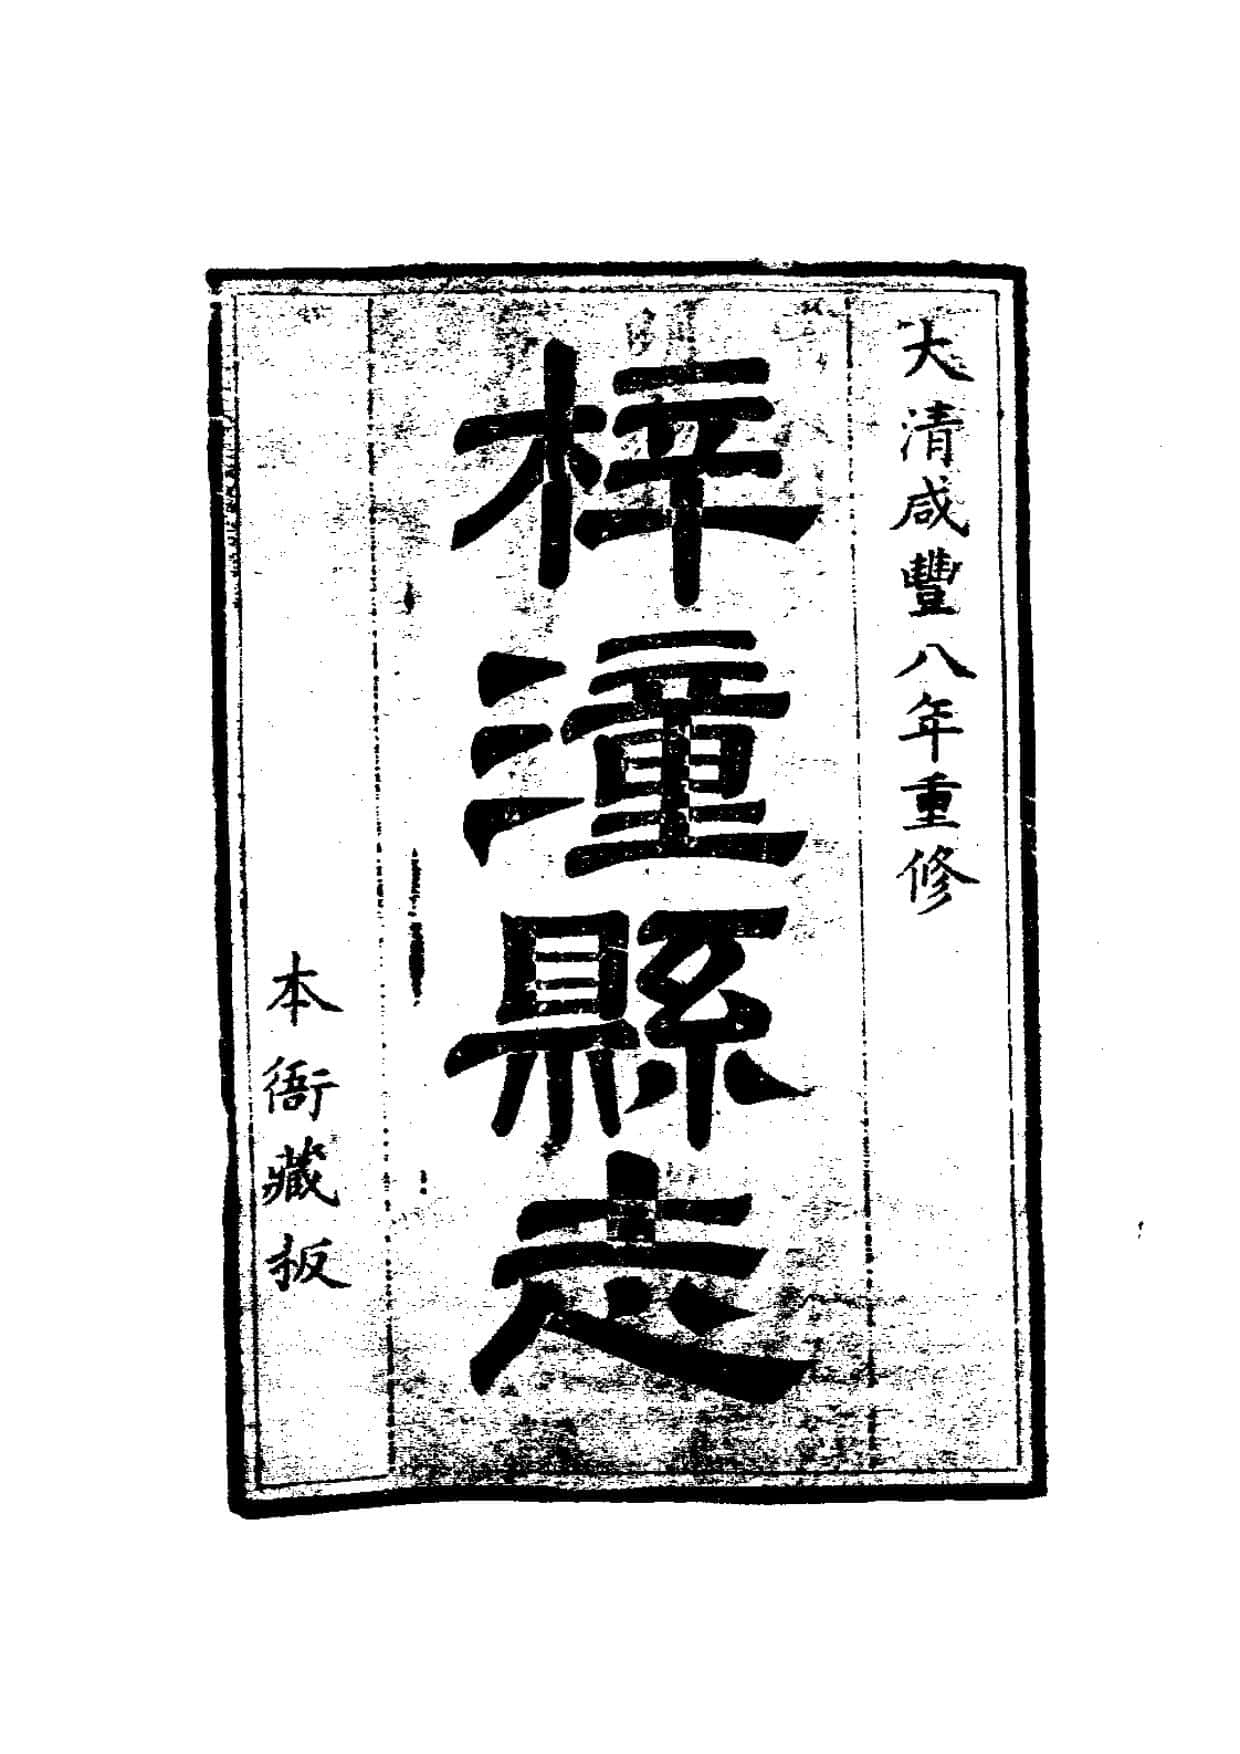 大清咸豐八年重修
梓潼縣志
本衙藏板